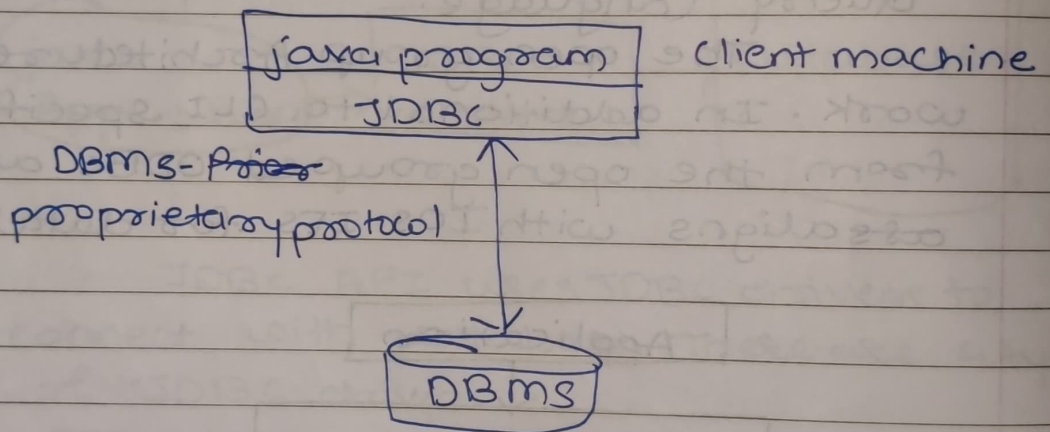 java program client machine
JDBC
DBMS-
proprietary protocol
DBMS